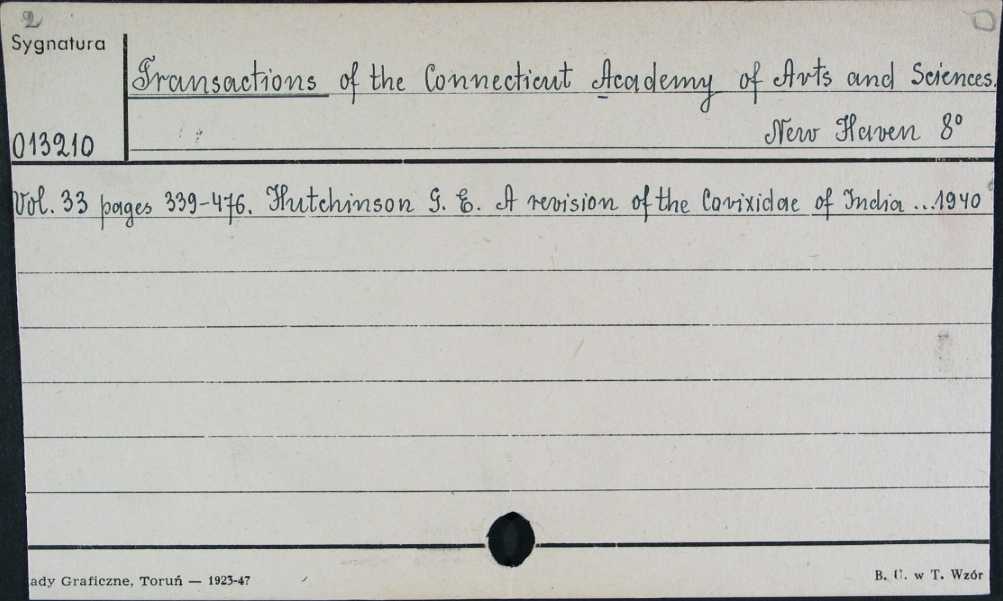 2
Sygnatura
Transactions of the Connecticut Academy of Arts and Sciences.
013210
New Haven 8°
Vol. 33 pages 339-476. Hutchinson G. E. A revision of the Corixidae of India ...1940
ady Graficzne, Toruń — 1923-47
B. U. w T. Wzór